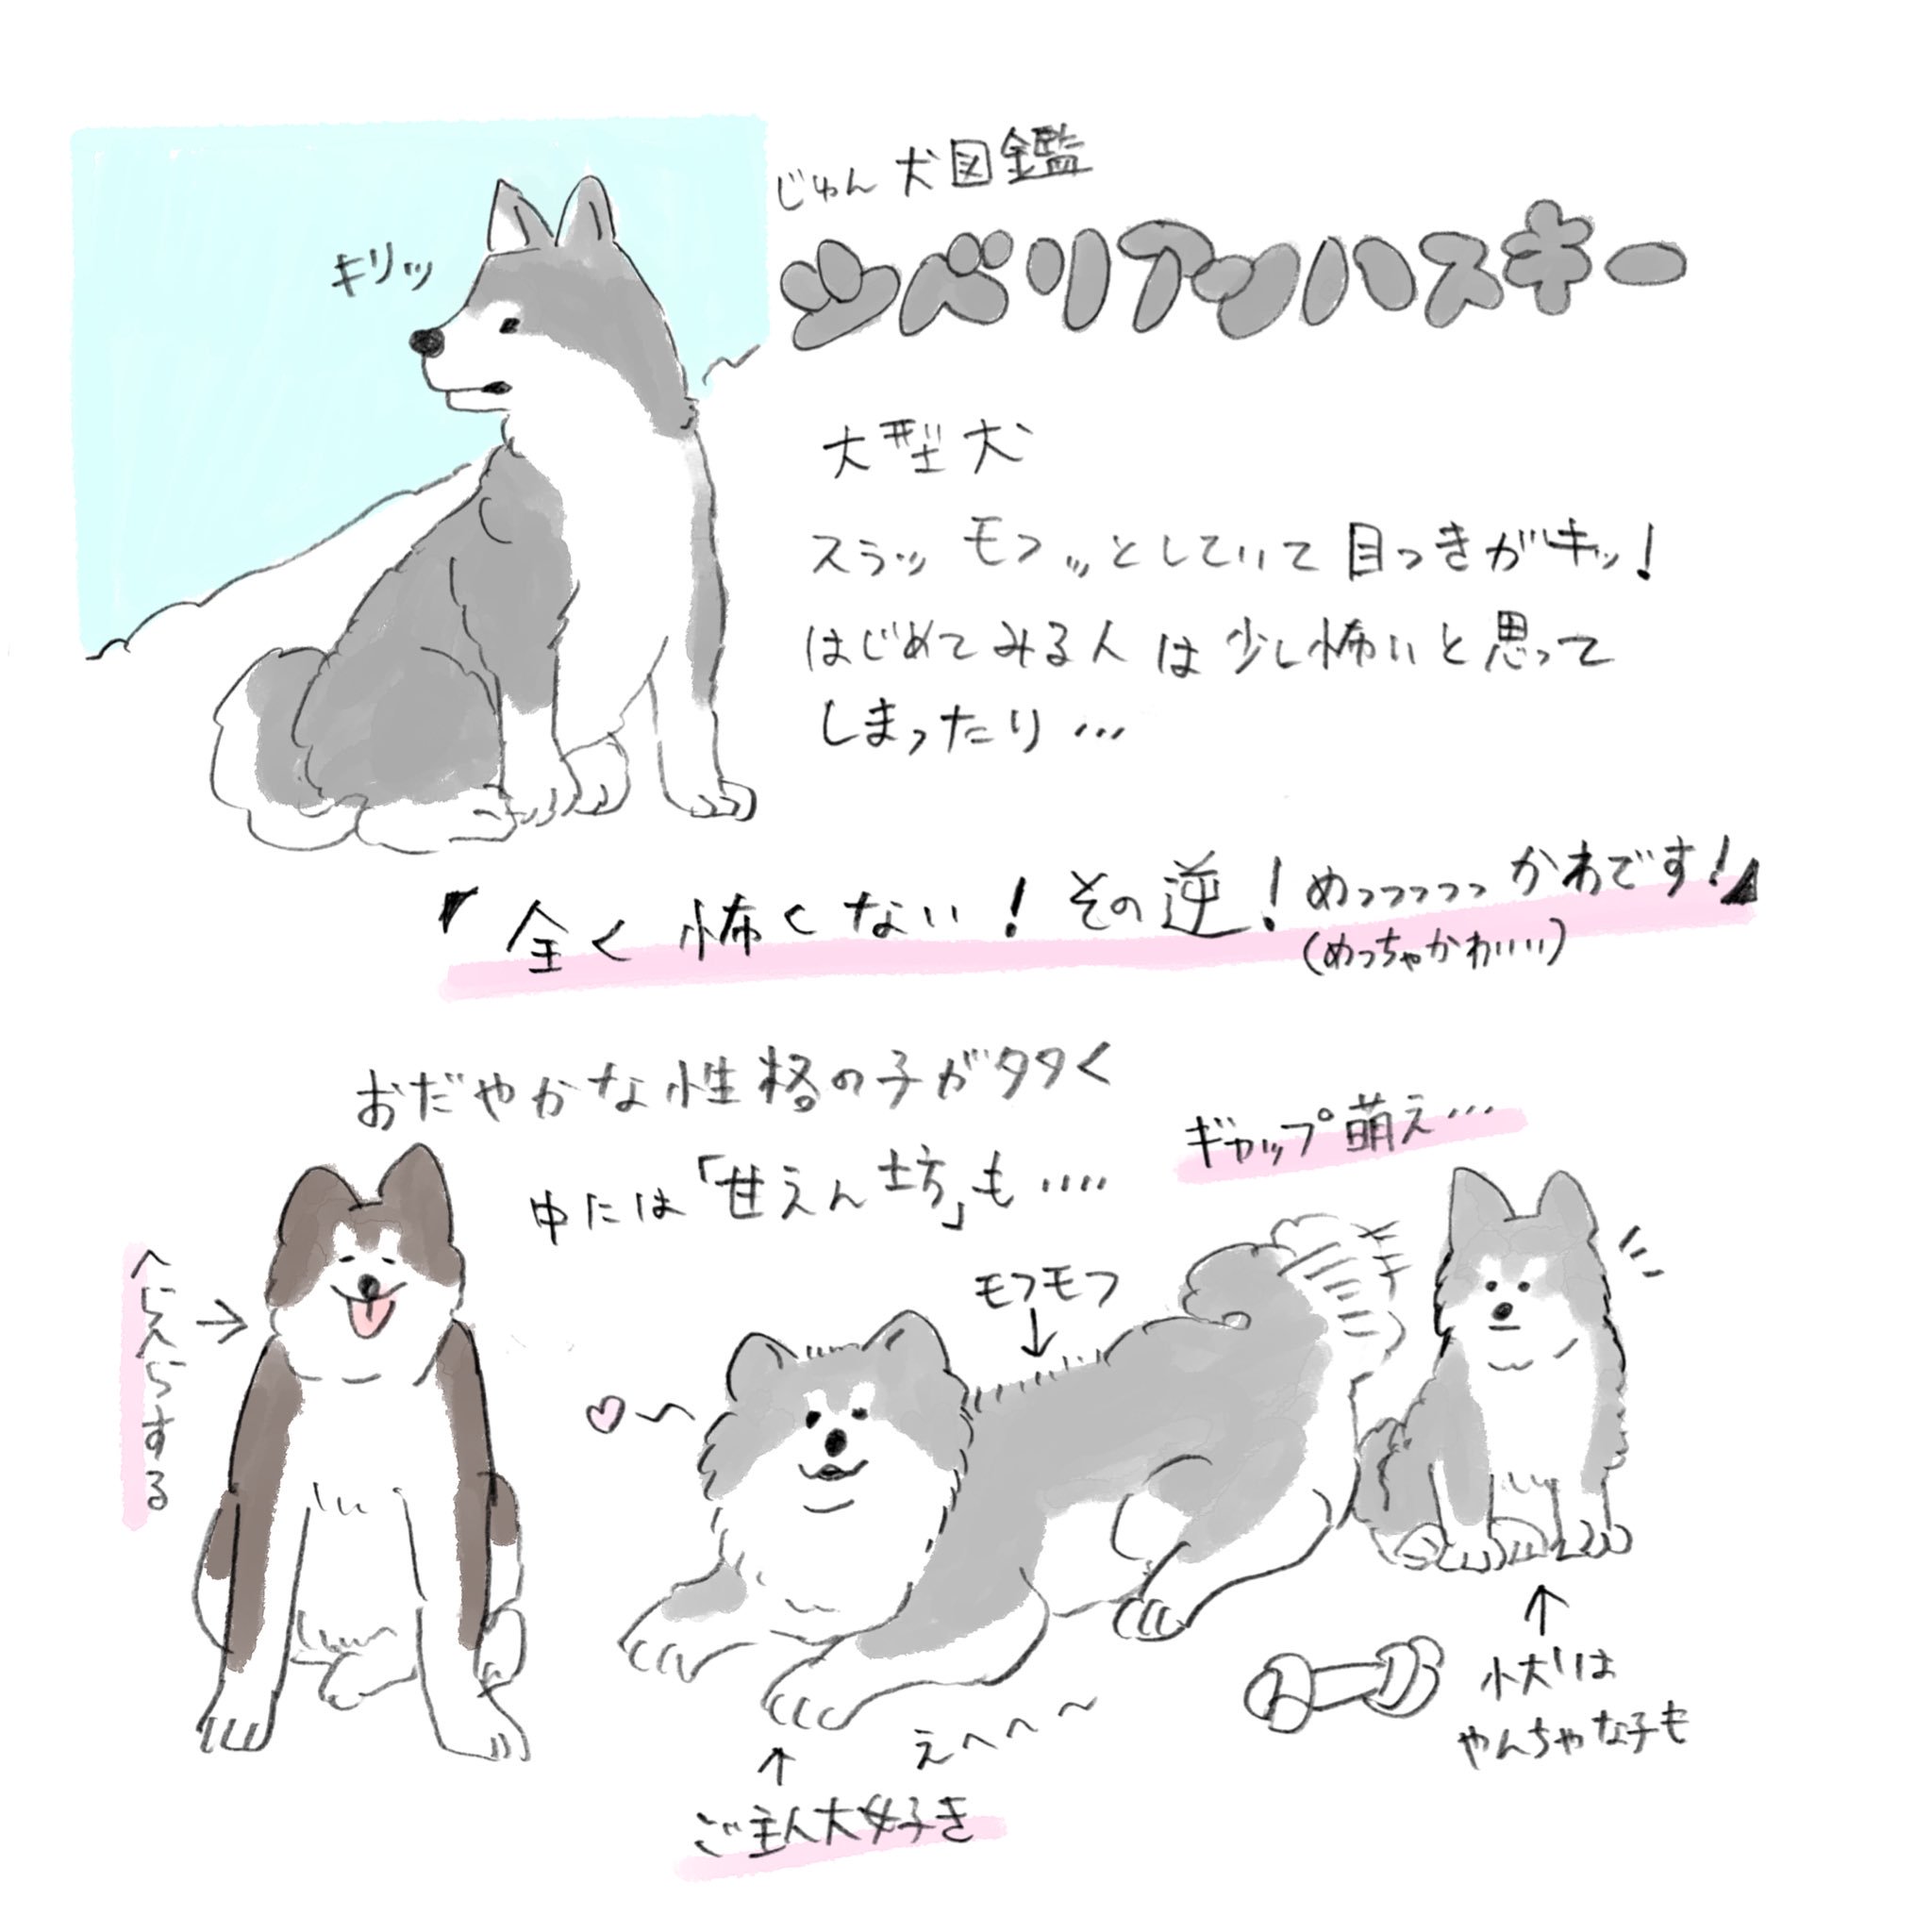 じゅん犬図鑑
シベリアンハスキー
キリッ
大型犬
スラッ モフッとしていて目つきがキッ!
はじめてみる人は少し怖いと思って
しまったり…
『全く怖くない!その逆!めっっっっっかわです!』
(めっちゃかわいいい)
おだやかな性格の子が多く
中には「甘えん坊」も....
ギャップ萌え…
へらへらする
モフモフ
えへへへ〜
ご主人大好き
小犬は
やんちゃな子も